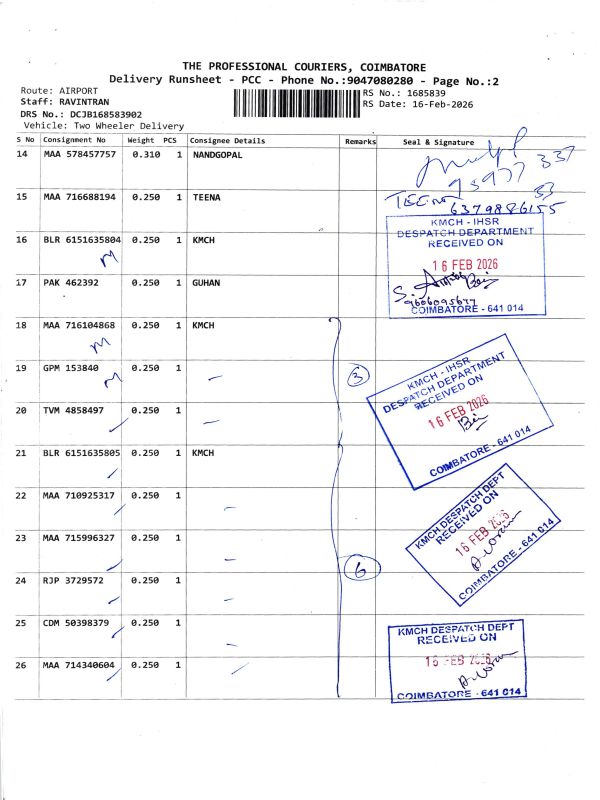 THE PROFESSIONAL COURIERS, COIMBATORE
Delivery Runsheet - PCC - Phone No.:9047080280 - Page No.:2
Route: AIRPORT
RS No.: 1685839
Staff: RAVINTRAN
RS Date: 16-Feb-2026
DRS No.: DCJB168583902
Vehicle: Two Wheeler Delivery
S No Consignment No Weight PCS Consignee Details Remarks Seal & Signature
14 MAA 578457757 0.310 1 NANDGOPAL
15 MAA 716688194 0.250 1 TEENA
6379886155
16 BLR 6151635804 0.250 1 KMCH
M
KMCH - IHSR
DESPATCH DEPARTMENT
RECEIVED ON
16 FEB 2026
17 PAK 462392 0.250 1 GUHAN
9606095677
COIMBATORE - 641 014
18 MAA 716104868 0.250 1 KMCH
M
19 GPM 153840 0.250 1
M
3
KMCH - IHSR
DESPATCH DEPARTMENT
RECEIVED ON
16 FEB 2026
COIMBATORE - 641 014
20 TVM 4858497 0.250 1
21 BLR 6151635805 0.250 1 KMCH
22 MAA 710925317 0.250 1
KMCH DESPATCH DEPT
RECEIVED ON
16 FEB 2026
COIMBATORE - 641 014
23 MAA 715996327 0.250 1
6
24 RJP 3729572 0.250 1
25 CDM 50398379 0.250 1
KMCH DESPATCH DEPT
RECEIVED ON
16 FEB 2026
COIMBATORE - 641 014
26 MAA 714340604 0.250 1